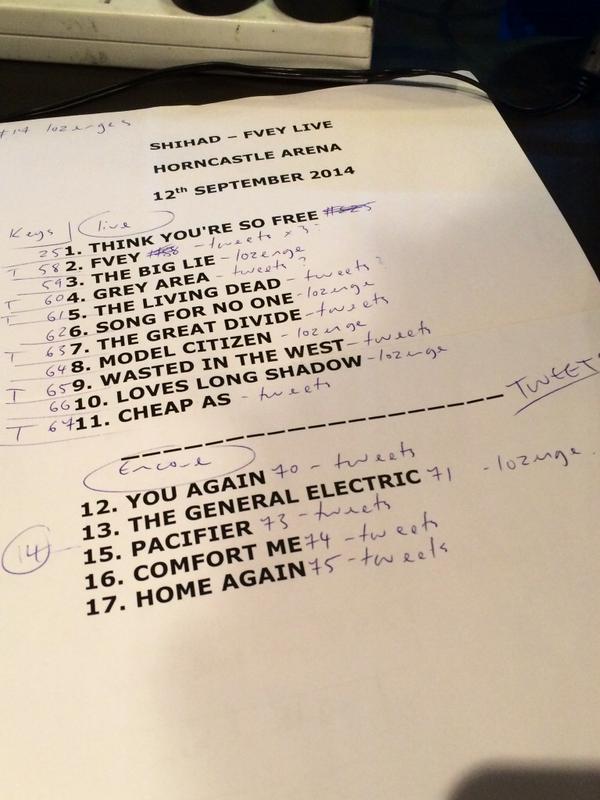 #14 lozenges
SHIHAD – FVEY LIVE
HORNCASTLE ARENA
12th SEPTEMBER 2014
Keys live
25 1. THINK YOU'RE SO FREE
T 58 2. FVEY - tweets x 3
59 3. THE BIG LIE - lozenge
T 60 4. GREY AREA - tweets ?
T 61 5. THE LIVING DEAD - tweets ?
62 6. SONG FOR NO ONE - lozenge
T 63 7. THE GREAT DIVIDE - tweets
64 8. MODEL CITIZEN - lozenge
T 65 9. WASTED IN THE WEST - tweets
66 10. LOVES LONG SHADOW - lozenge
T 67 11. CHEAP AS - tweets
TWEET
Encore
12. YOU AGAIN 70 - tweets
13. THE GENERAL ELECTRIC 71 - lozenge
14 15. PACIFIER 73 - tweets
16. COMFORT ME 74 - tweets
17. HOME AGAIN 75 - tweets